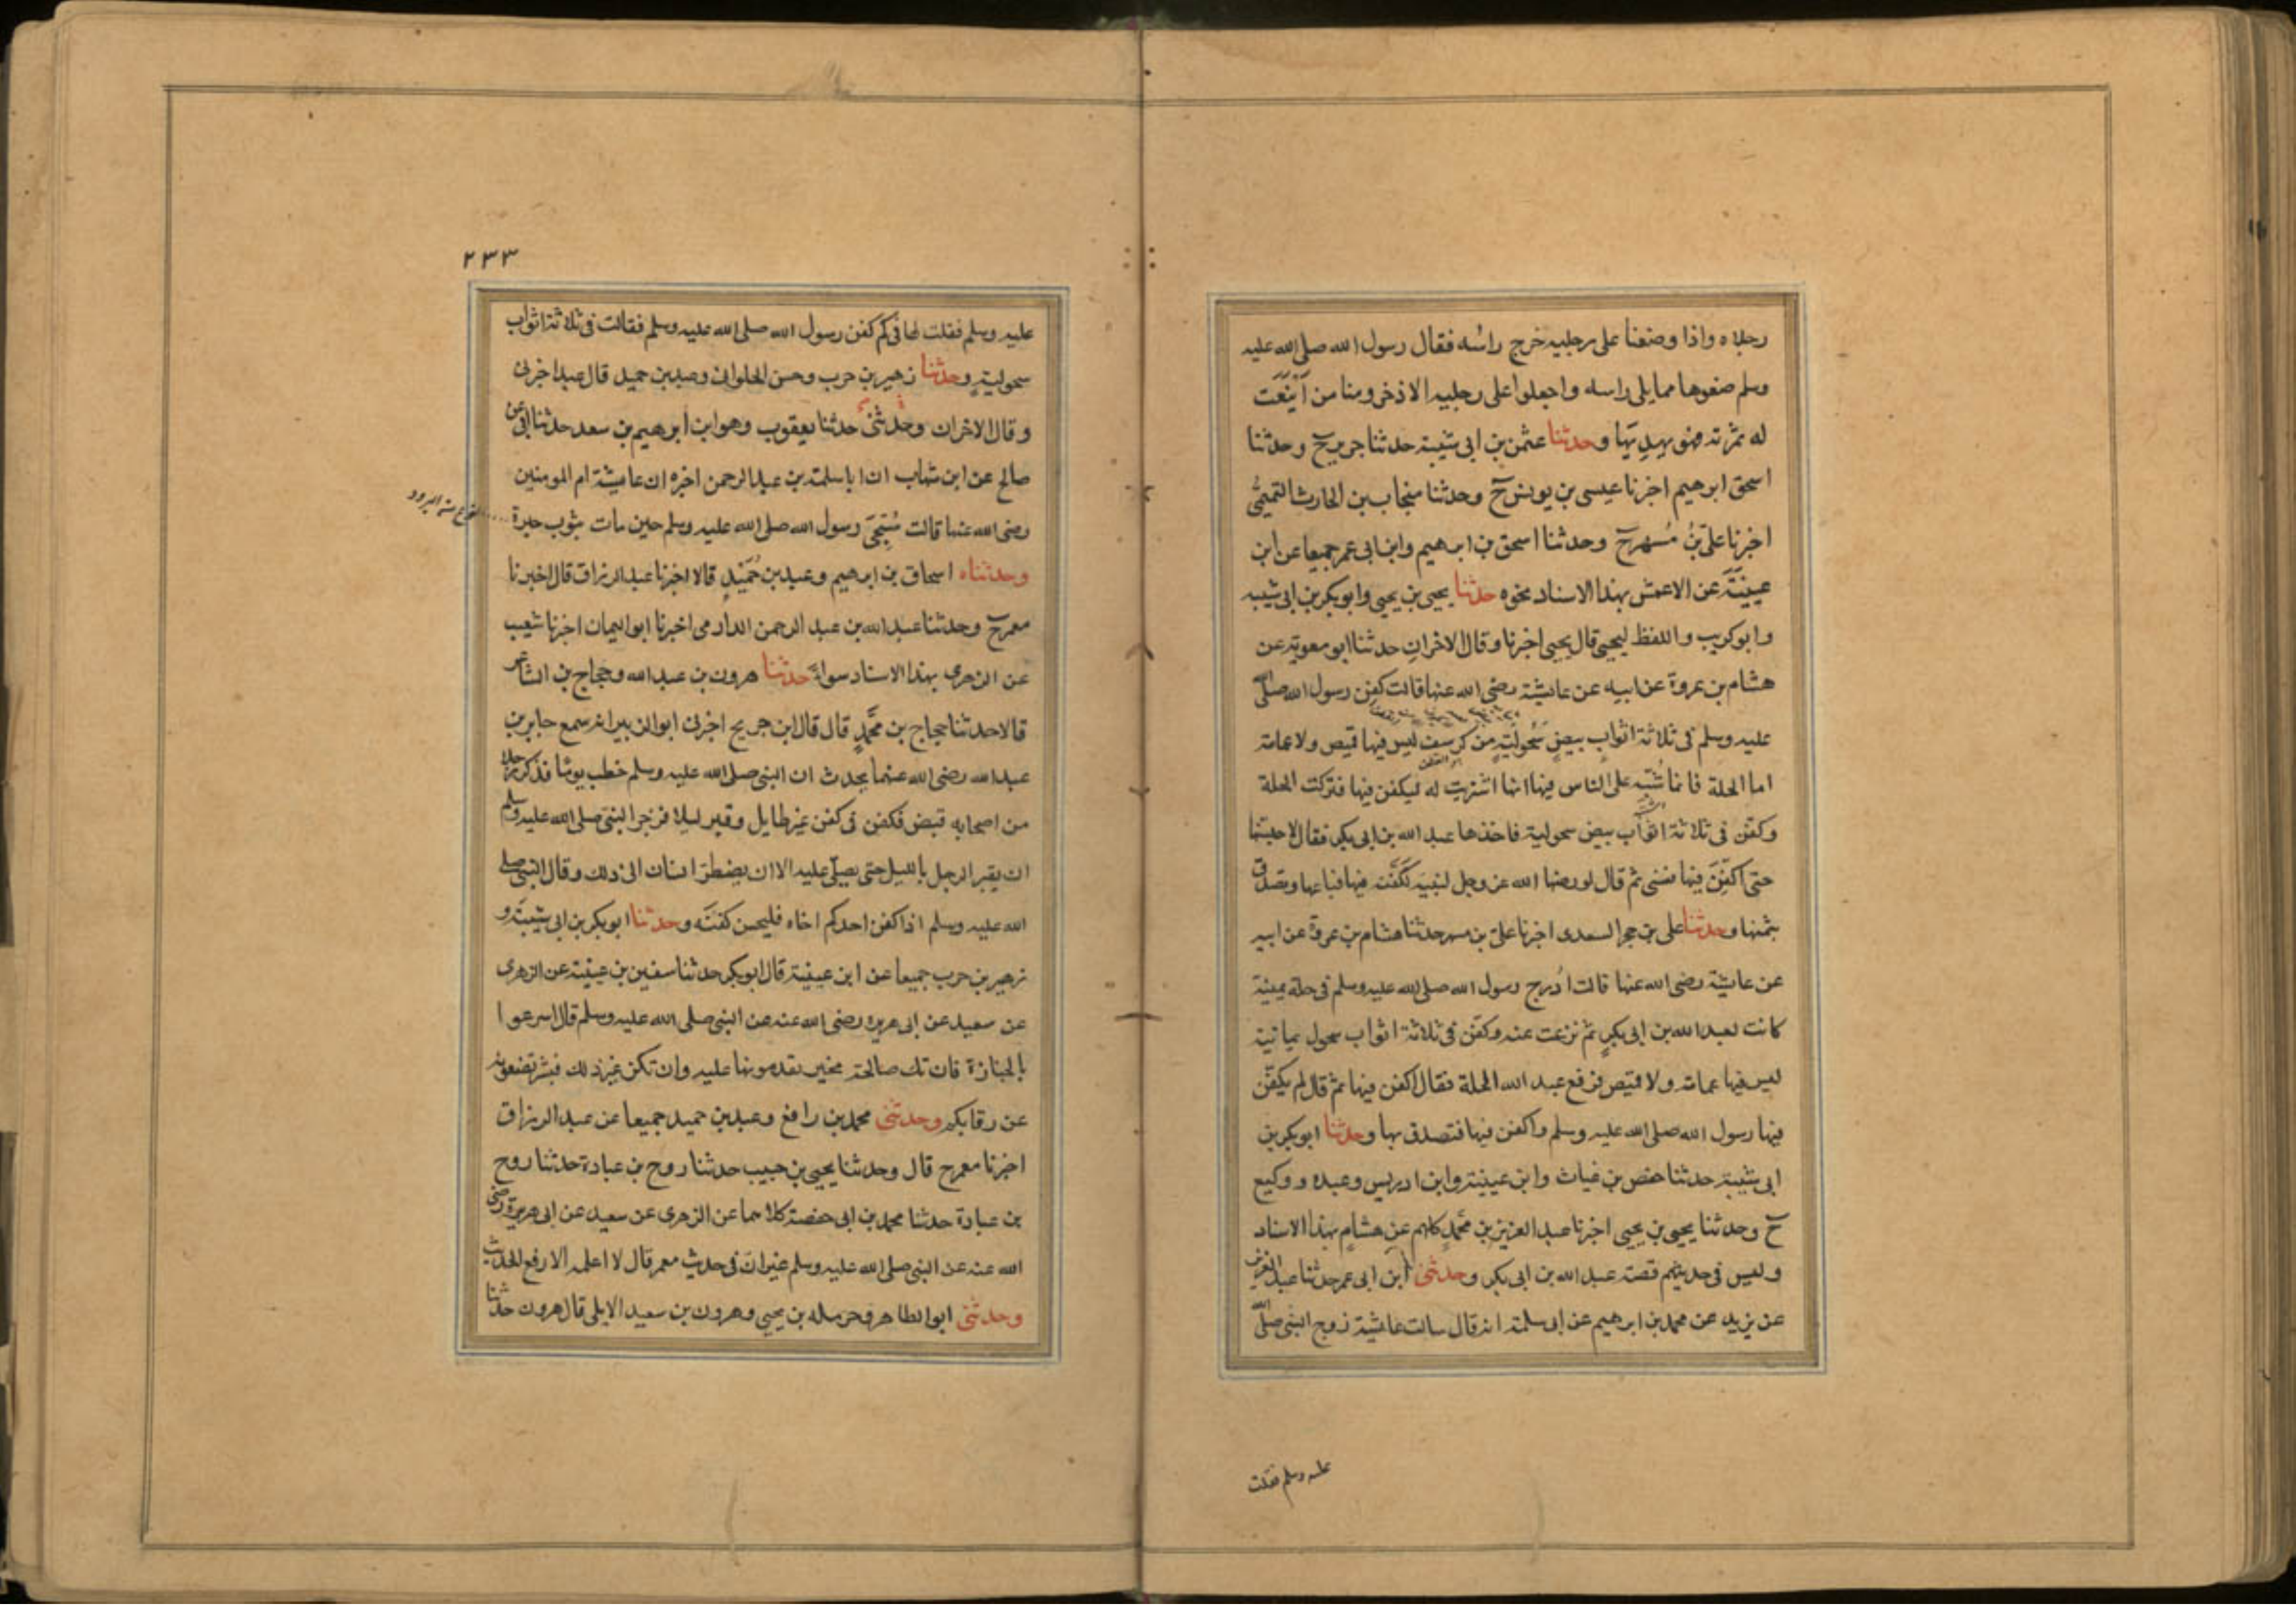 رجلاه واذا وضعنا على رجليه خرج راسُه فقال رسول الله صلى الله عليه
وسلم ضعوها مما يلى راسه واجعلوا على رجليه الاذخر ومنا من اَيْنَعَت
له ثمرته فهو يهدِبَها وحدثنا عثمن بن ابى شيبة حدثنا جرير ح وحدثنا
اسحق ابرهيم اخبرنا عيسى بن يونس ح وحدثنا منجاب بن الحارث التميمىُّ
اخبرنا علىّ بنُ مُسهر ح وحدثنا اسحق بن ابرهيم وابن ابى عمر جميعا عن ابن
عيينَةَ عن الاعمش بهذا الاسناد نحوه حدثنا يحيى بن يحيى وابو بكر بن ابى شيبه
وابو كريب واللفظ ليحيى قال يحيى اخبرنا وقال الاخرانِ حدثنا ابو معوية عن
هشام بن عروة عن ابيه عن عايشة رضى الله عنها قالت كفن رسول الله صلى الله
عليه وسلم فى ثلاثة اثوابٍ بيضٍ سَحُوليّةٍ من كرسف ليس فيها قميص ولا عمامة
اما الحلة فانما شُبّه على الناس فيها انها اشتريت له ليكفن فيها فتركت الحلة
وكفن فى ثلاثة اثواب بيض سحولية فاخذها عبد الله بن ابى بكر فقال لاحبسنها
حتى اكفّنَ فيها نفسى ثم قال لو رضيها الله عز وجل لنبيه لكَفّنَه فيها فباعها وتصدق
بثمنها وحدثنا على بن حجر السعدى اخبرنا علىّ بن مسهر حدثنا هشام بن عروة عن ابيه
عن عايشة رضى الله عنها قالت اُدرج رسول الله صلى الله عليه وسلم فى حلة يمنية
كانت لعبد الله بن ابى بكرٍ ثم نزعت عنه وكفّن فى ثلاثة اثواب سحول يمانية
ليس فيها عمامة ولا قميص فرفع عبد الله الحلة فقال اكفن فيها ثم قال لم يكفّن
فيها رسول الله صلى الله عليه وسلم واكفن فيها فتصدق بها وحدثنا ابو بكر بن
ابى شيبة حدثنا حفص بن غياث وابن عيينة وابن ادريس وعبده ووكيع
ح وحدثنا يحيى بن يحيى اخبرنا عبد العزيز بن محمدٍ كلهم عن هشامٍ بهذا الاسناد
وليس فى حديثهم قصة عبد الله بن ابى بكر وحدثنى ابن ابى عمر حدثنا عبد العزيز
عن يزيد عن محمد بن ابرهيم عن ابى سلمة انه قال سالت عايشة زوج النبى صلى الله
عليه وسلم فقلت
٢٣٣
عليه وسلم فقلت لها فى كم كفن رسول الله صلى الله عليه وسلم فقالت فى ثلاثة اثواب
سحوليةٍ وحدثنا زهير بن حرب وحسن الحلوانى وعبد بن حميد قال عبد اخبرنى
وقال الاخران وحدثنى حدثنا يعقوب وهو ابن ابرهيم بن سعد حدثنا ابى عن
صالح عن ابن شهاب ان ابا سلمة بن عبد الرحمن اخبره ان عايشة ام المومنين
رضى الله عنها قالت سُجِّىَ رسول الله صلى الله عليه وسلم حين مات بثوب حبرة
وحدثناه اسحاق بن ابرهيم وعبد بن حُمَيْدٍ قالا اخبرنا عبد الرزاق قال اخبرنا
معمر ح وحدثنا عبد الله بن عبد الرحمن الدارمى اخبرنا ابو اليمان اخبرنا شعيب
عن الزهرى بهذا الاسناد سواءً حدثنا هرون بن عبد الله وحجاج بن الشاعر
قالا حدثنا حجاج بن محمّدٍ قال قال ابن جريج اخبرنى ابو الزبير انه سمع جابر بن
عبد الله رضى الله عنهما يحدث ان النبى صلى الله عليه وسلم خطب يومًا فذكر رجلا
من اصحابه قبض فكفن فى كفن غير طايل وقبر ليلا فزجر النبى صلى الله عليه وسلم
ان يقبر الرجل بالليل حتى يصلّى عليه الا ان يضطرّ انسان الى ذلك وقال النبى صلى
الله عليه وسلم اذا كفن احدكم اخاه فليحسن كفنَه وحدثنا ابو بكر بن ابى شيبَة و
زهير بن حرب جميعا عن ابن عيينة قال ابو بكر حدثنا سفين بن عيينة عن الزهرى
عن سعيد عن ابى هريرة رضى الله عنه عن النبى صلى الله عليه وسلم قال اسرعوا
بالجنازة فان تك صالحة فخير تقدمونها عليه وان تكن غير ذلك فشر تضعونه
عن رقابكم وحدثنى محمد بن رافع وعبد بن حميد جميعا عن عبد الرزاق
اخبرنا معمر ح قال وحدثنا يحيى بن حبيب حدثنا روح بن عبادة حدثنا روح
بن عبادة حدثنا محمد بن ابى حفصة كلاهما عن الزهرى عن سعيد عن ابى هريرة رضى
الله عنه عن النبى صلى الله عليه وسلم غير ان فى حديث معمر قال لا اعلمه الا رفع الحديث
وحدثنى ابو الطاهر وحرمله بن يحيى وهرون بن سعيد الايلى قال هرون حدثنا